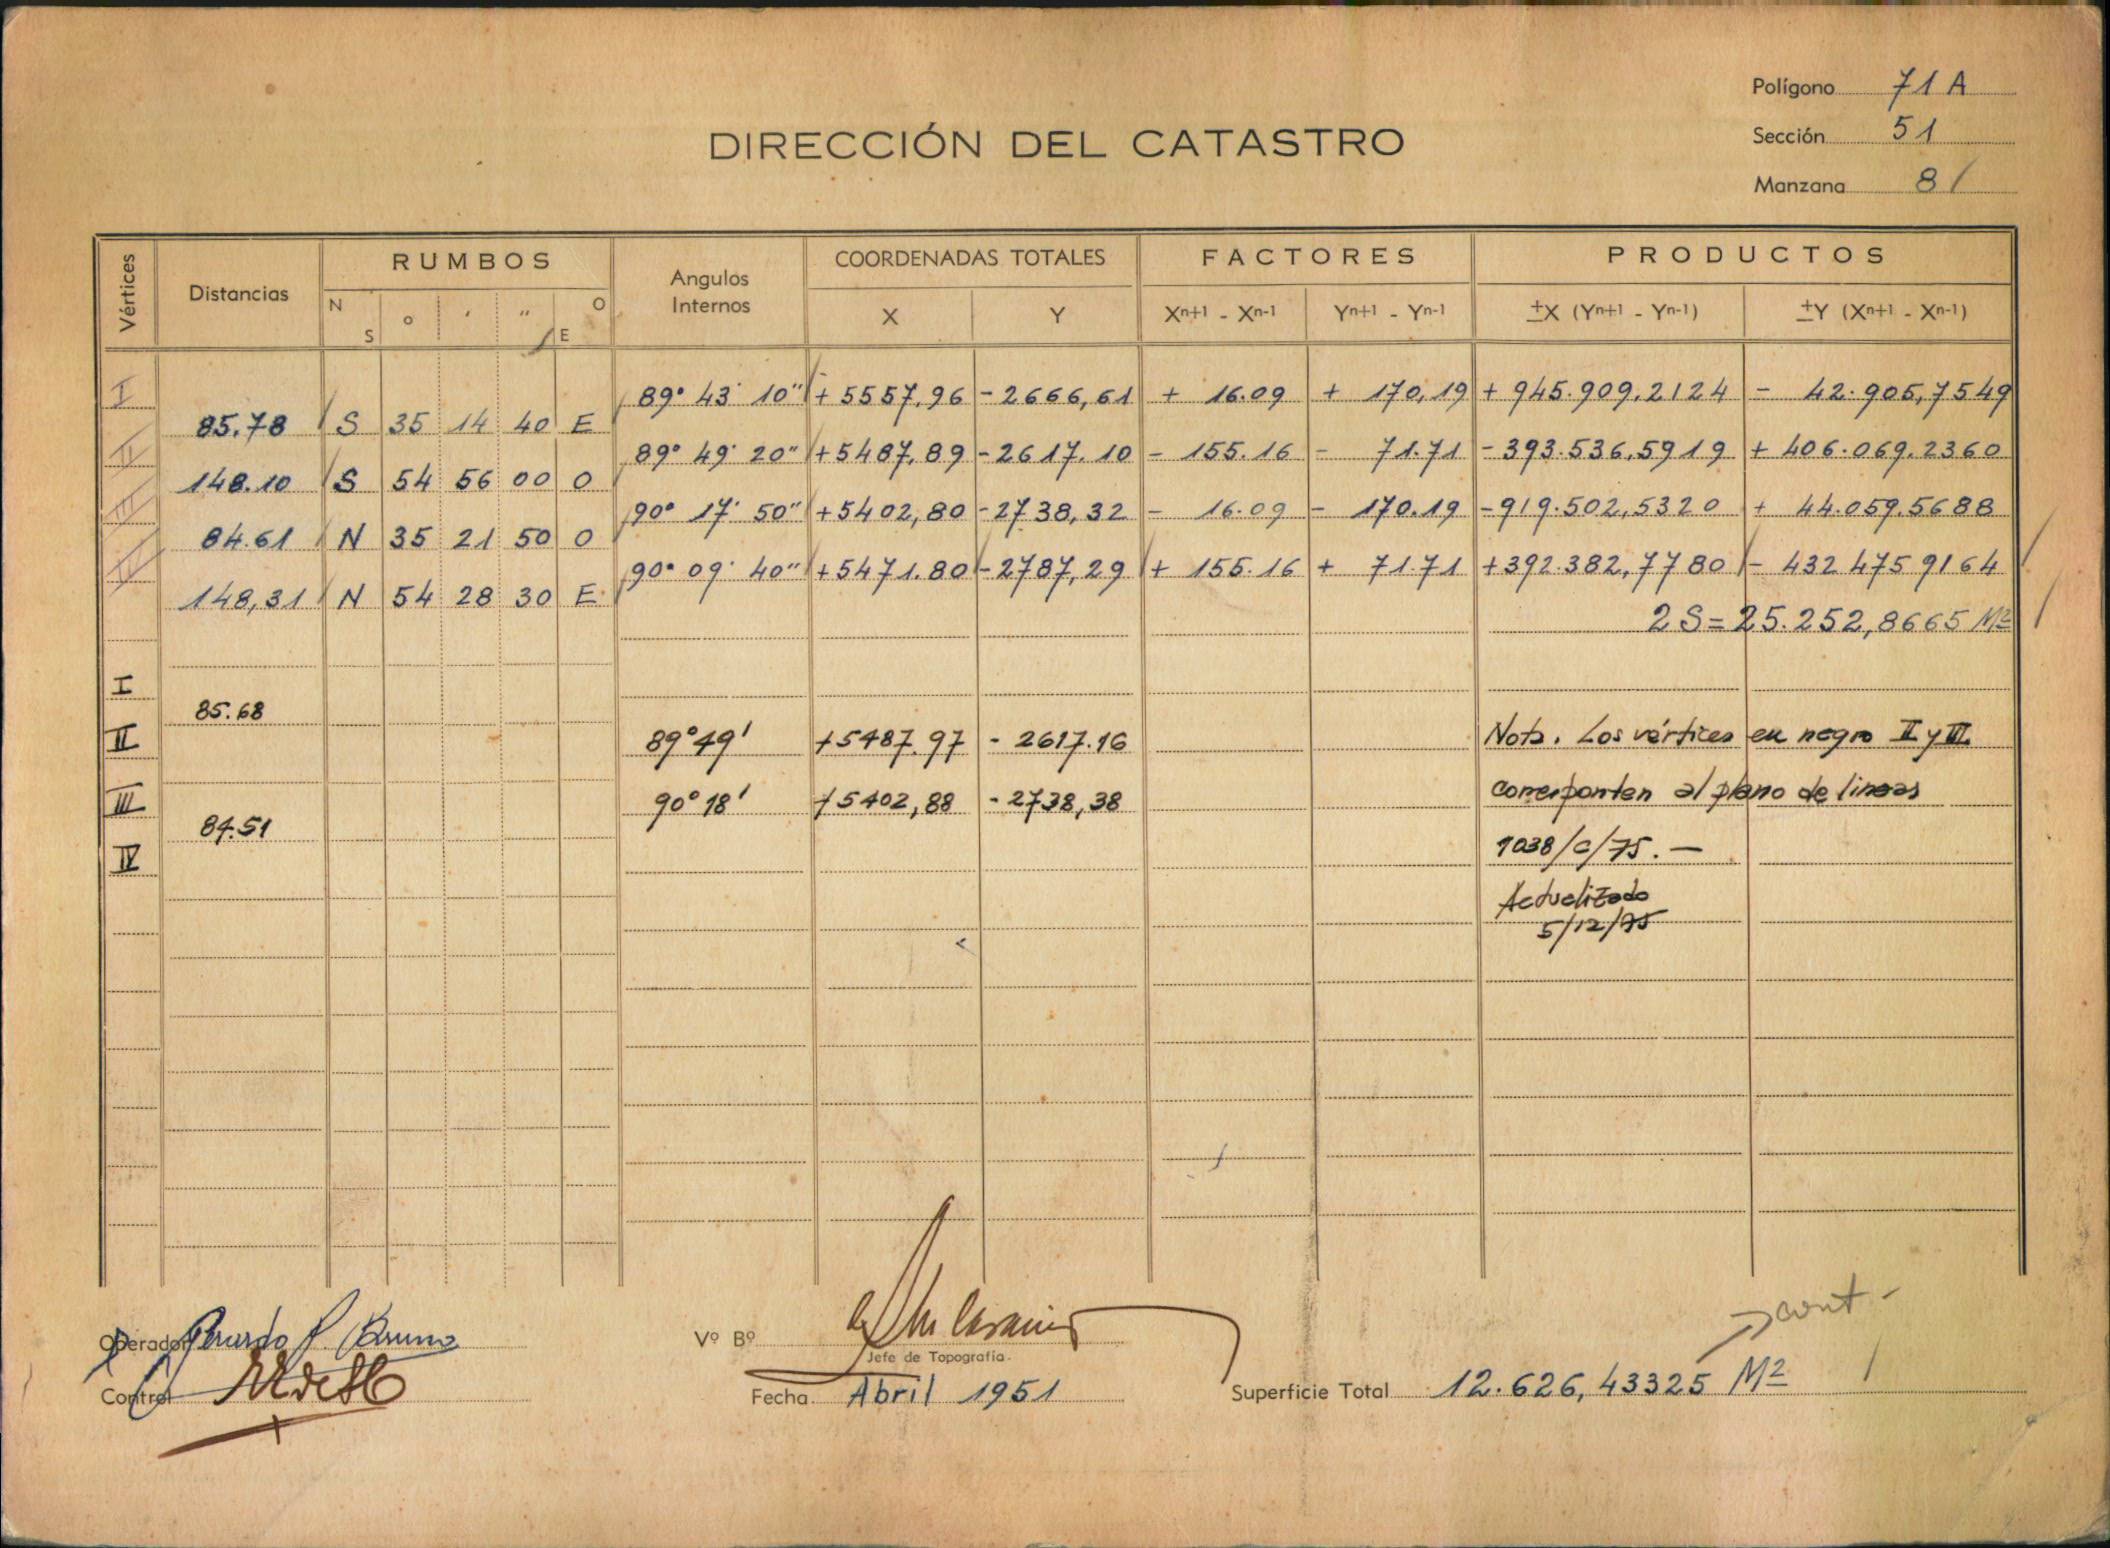 Polígono 71 A
Sección 51
Manzana 8
DIRECCIÓN DEL CATASTRO
Vértices Distancias RUMBOS Angulos Internos COORDENADAS TOTALES FACTORES PRODUCTOS
N S o ' '' O E X Y Xn+1 - Xn-1 Yn+1 - Yn-1 ±X (Yn+1 - Yn-1) ±Y (Xn+1 - Xn-1)
I 89° 43' 10" +5557,96 -2666,61 + 16.09 + 170,19 + 945.909.2124 - 42.905,7549
85.78 S 35 14 40 E
II 89° 49' 20" +5487,89 -2617.10 - 155.16 - 71.71 -393.536,5919 + 406.069.2360
148.10 S 54 56 00 O
III 90° 17' 50" +5402,80 -2738,32 - 16.09 - 170.19 -919.502,5320 + 44.059.5688
84.61 N 35 21 50 O
IV 90° 09' 40" +5471.80 -2787,29 + 155.16 + 71.71 +392.382,7780 - 432 475 9164
148,31 N 54 28 30 E
2 S = 25.252,8665 M²
I
85.68
II 89°49' +5487.97 - 2617.16 Nota. Los vértices en negro II y III
III 90°18' +5402,88 - 2738,38 corresponten al plano de lineas
84.51
IV 1038/C/75. —
Actualizado
5/12/75
cont -
Operador Gerardo P. Bruno
Vº Bº
Jefe de Topografía.
Control
Fecha Abril 1951
Superficie Total 12.626,43325 M²